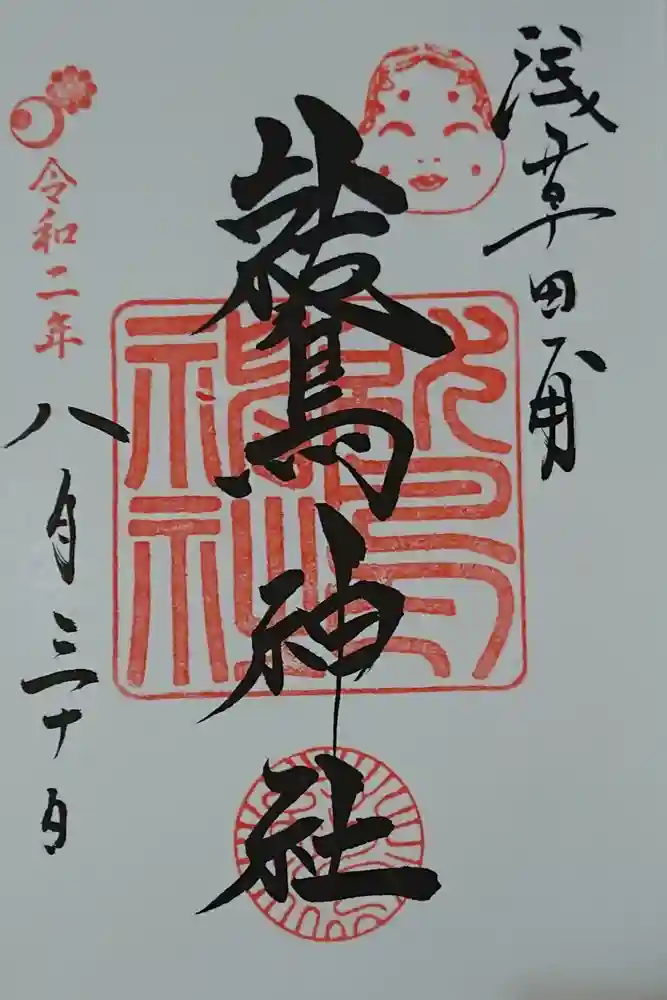 浅草田甫
鷲神社
令和二年八月三十日